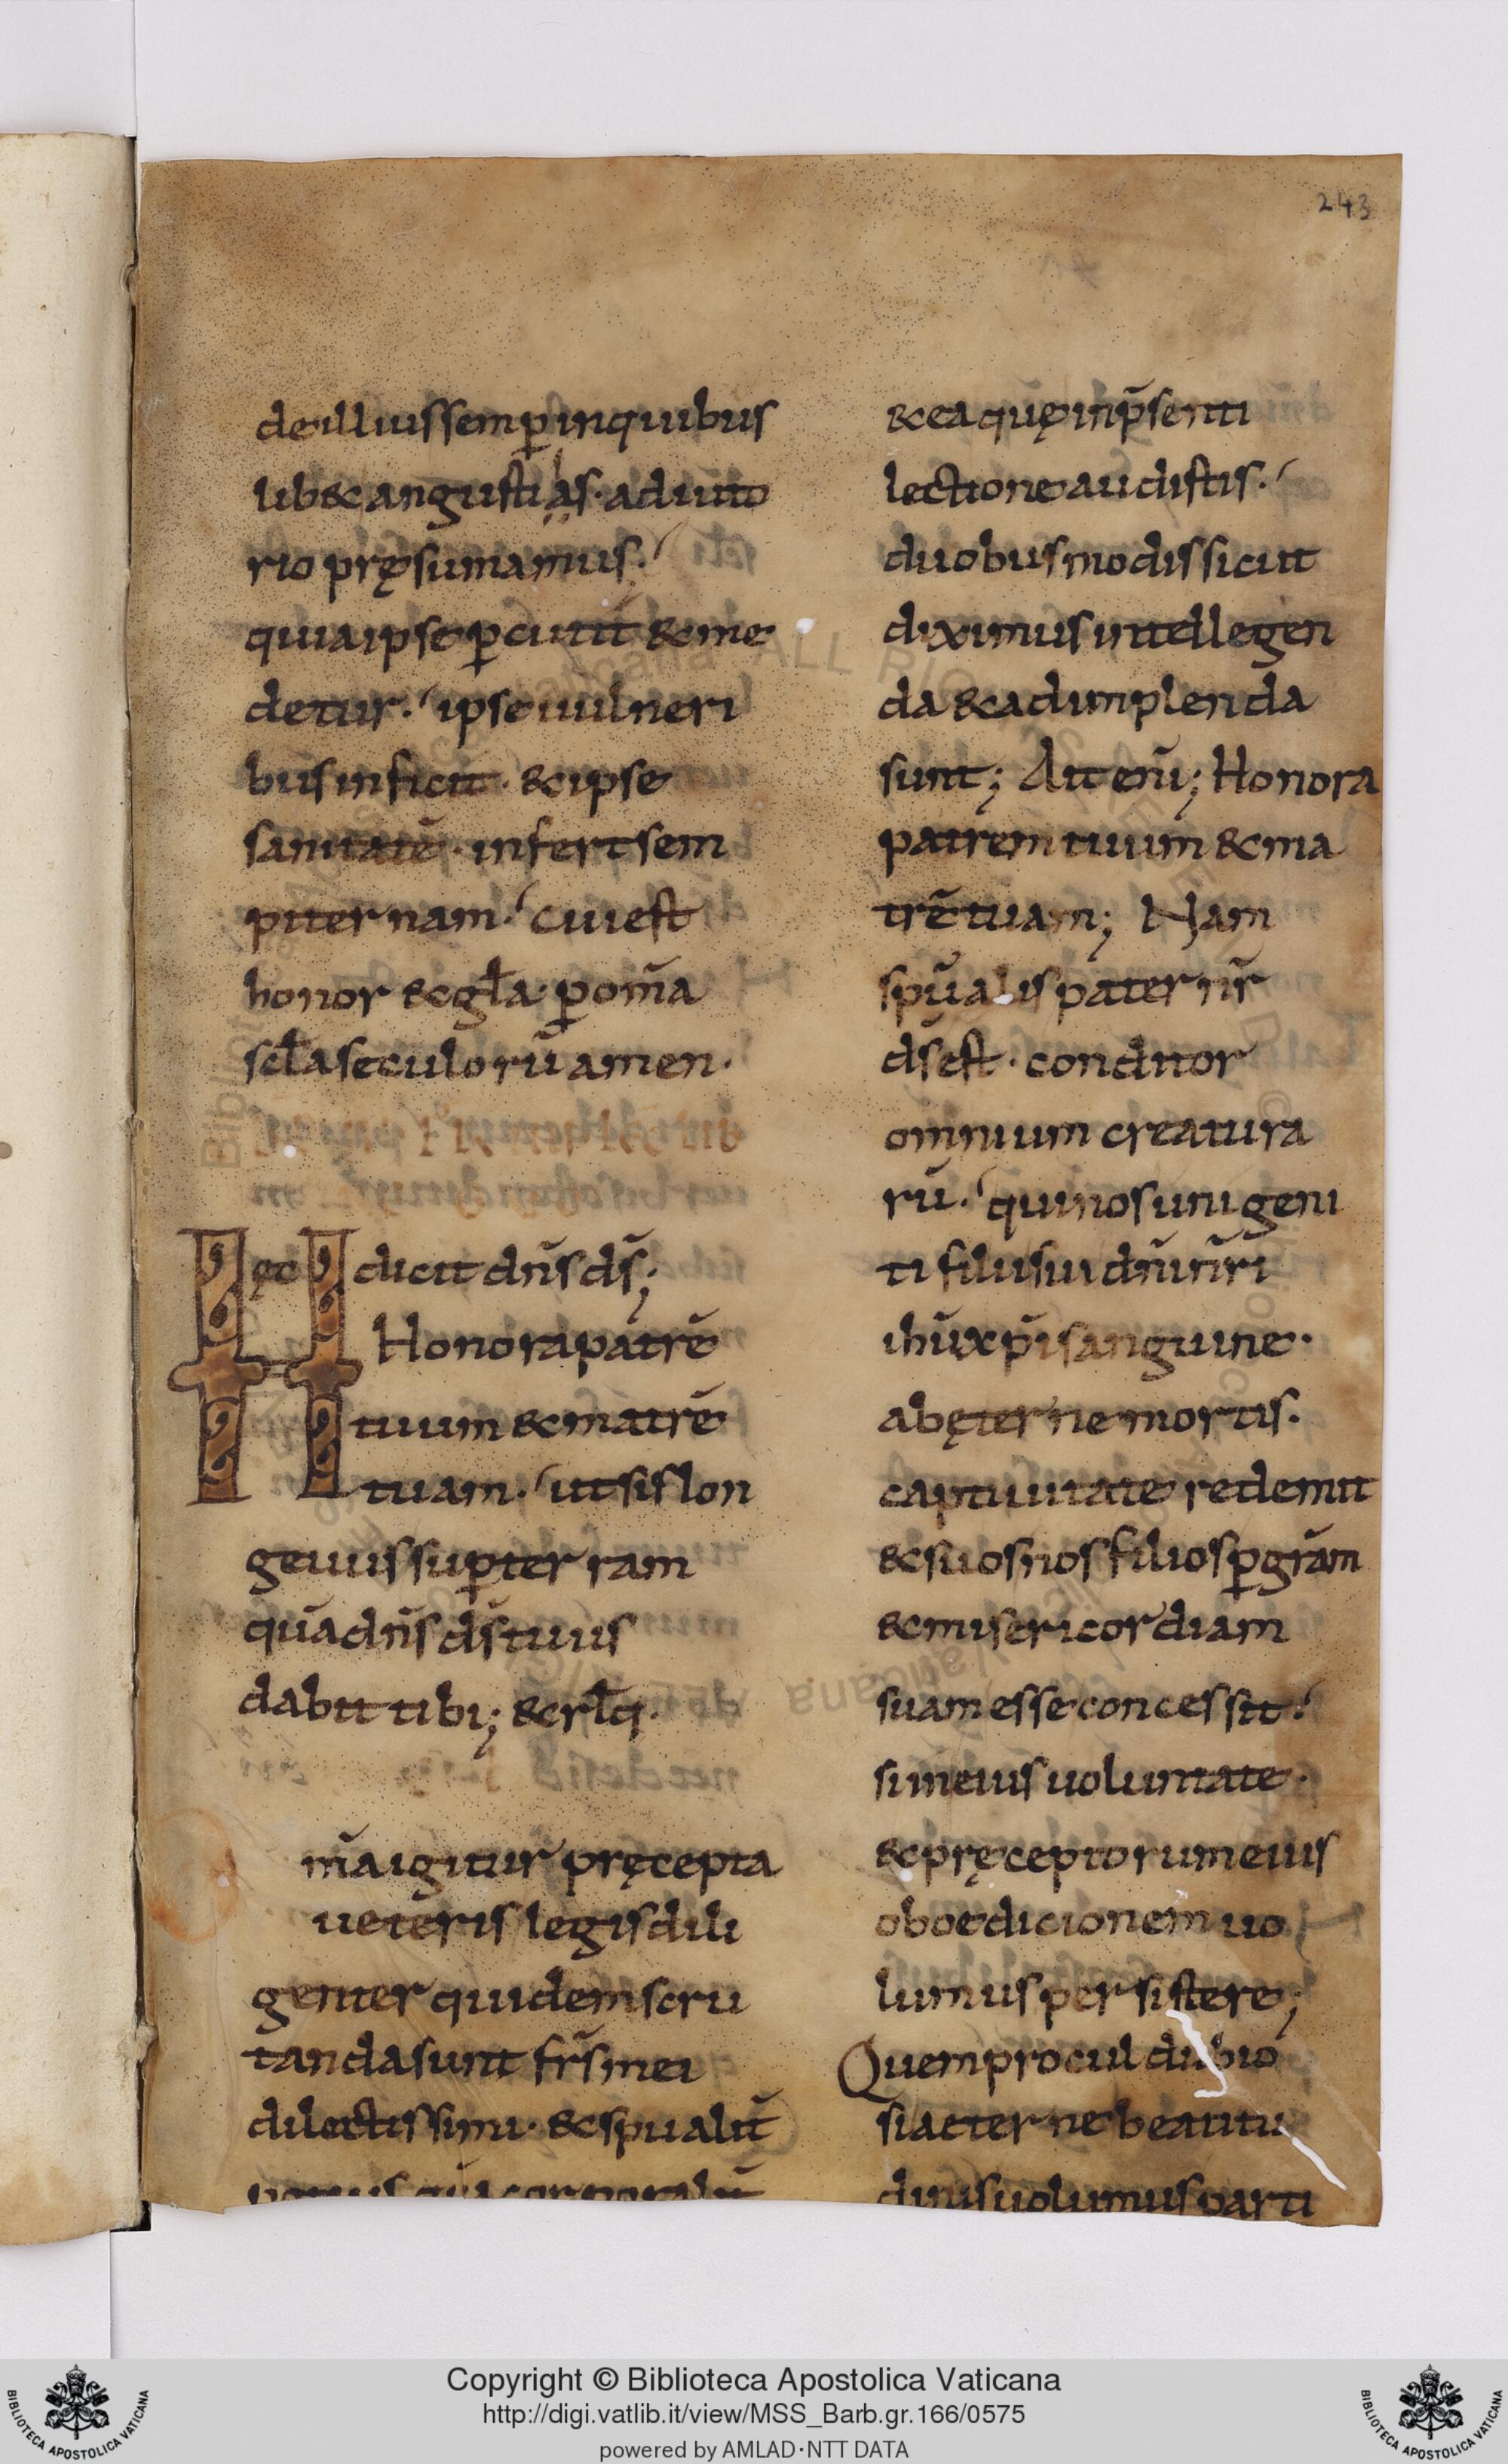 243
deilliussemꝑinquibus
lib&angustiis·adiuto
riopręsumamus.
quiaipseꝑcutit&me
detur.ipseuulneri
businficit·&ipse
sanitatē·infertsem
piternam.cuiest
honor&gl̄a·ꝑom̄a
scl̄aseculorūamen.
Hęc dicitdn̄sds̄;
Honorapatrē
tuum&matrē
tuam.utsislon
geuuissuꝑterram
quādn̄sds̄tuus
dabittibi;&rl̄q·
m̄aigiturpręcepta
ueterislegisdili
genterquidemscru
tandasuntfr̄smei
dilectissimi·&spualit̄
potiusquācorporalit̄
&eaquęinp̄senti
lectioneaudistis.
duobusmodissicut
diximusintellegen
da&adimplenda
sunt; Aitenī; Honora
patremtuum&ma
trētuam; Nam
spūalispaternr̄
ds̄est·conditor
omniumcreatura
rū.quinosunigeni
tifiliisuidn̄inr̄i
ihūxp̄isanguine·
abęternemortis.
captiuitateredemit
&suosnosfiliosꝑgrām
&misericordiam
suamesseconcessit.
sineiusuoluntate·
&pręceptorumeius
oboedicionemuo
lumuspersistere;
Quemproculdubio
siaeternebeatitu
dinisuolumusparti
Copyright © Biblioteca Apostolica Vaticana
http://digi.vatlib.it/view/MSS_Barb.gr.166/0575
powered by AMLAD·NTT DATA
BIBLIOTECA APOSTOLICA VATICANA
BIBLIOTECA APOSTOLICA VATICANA